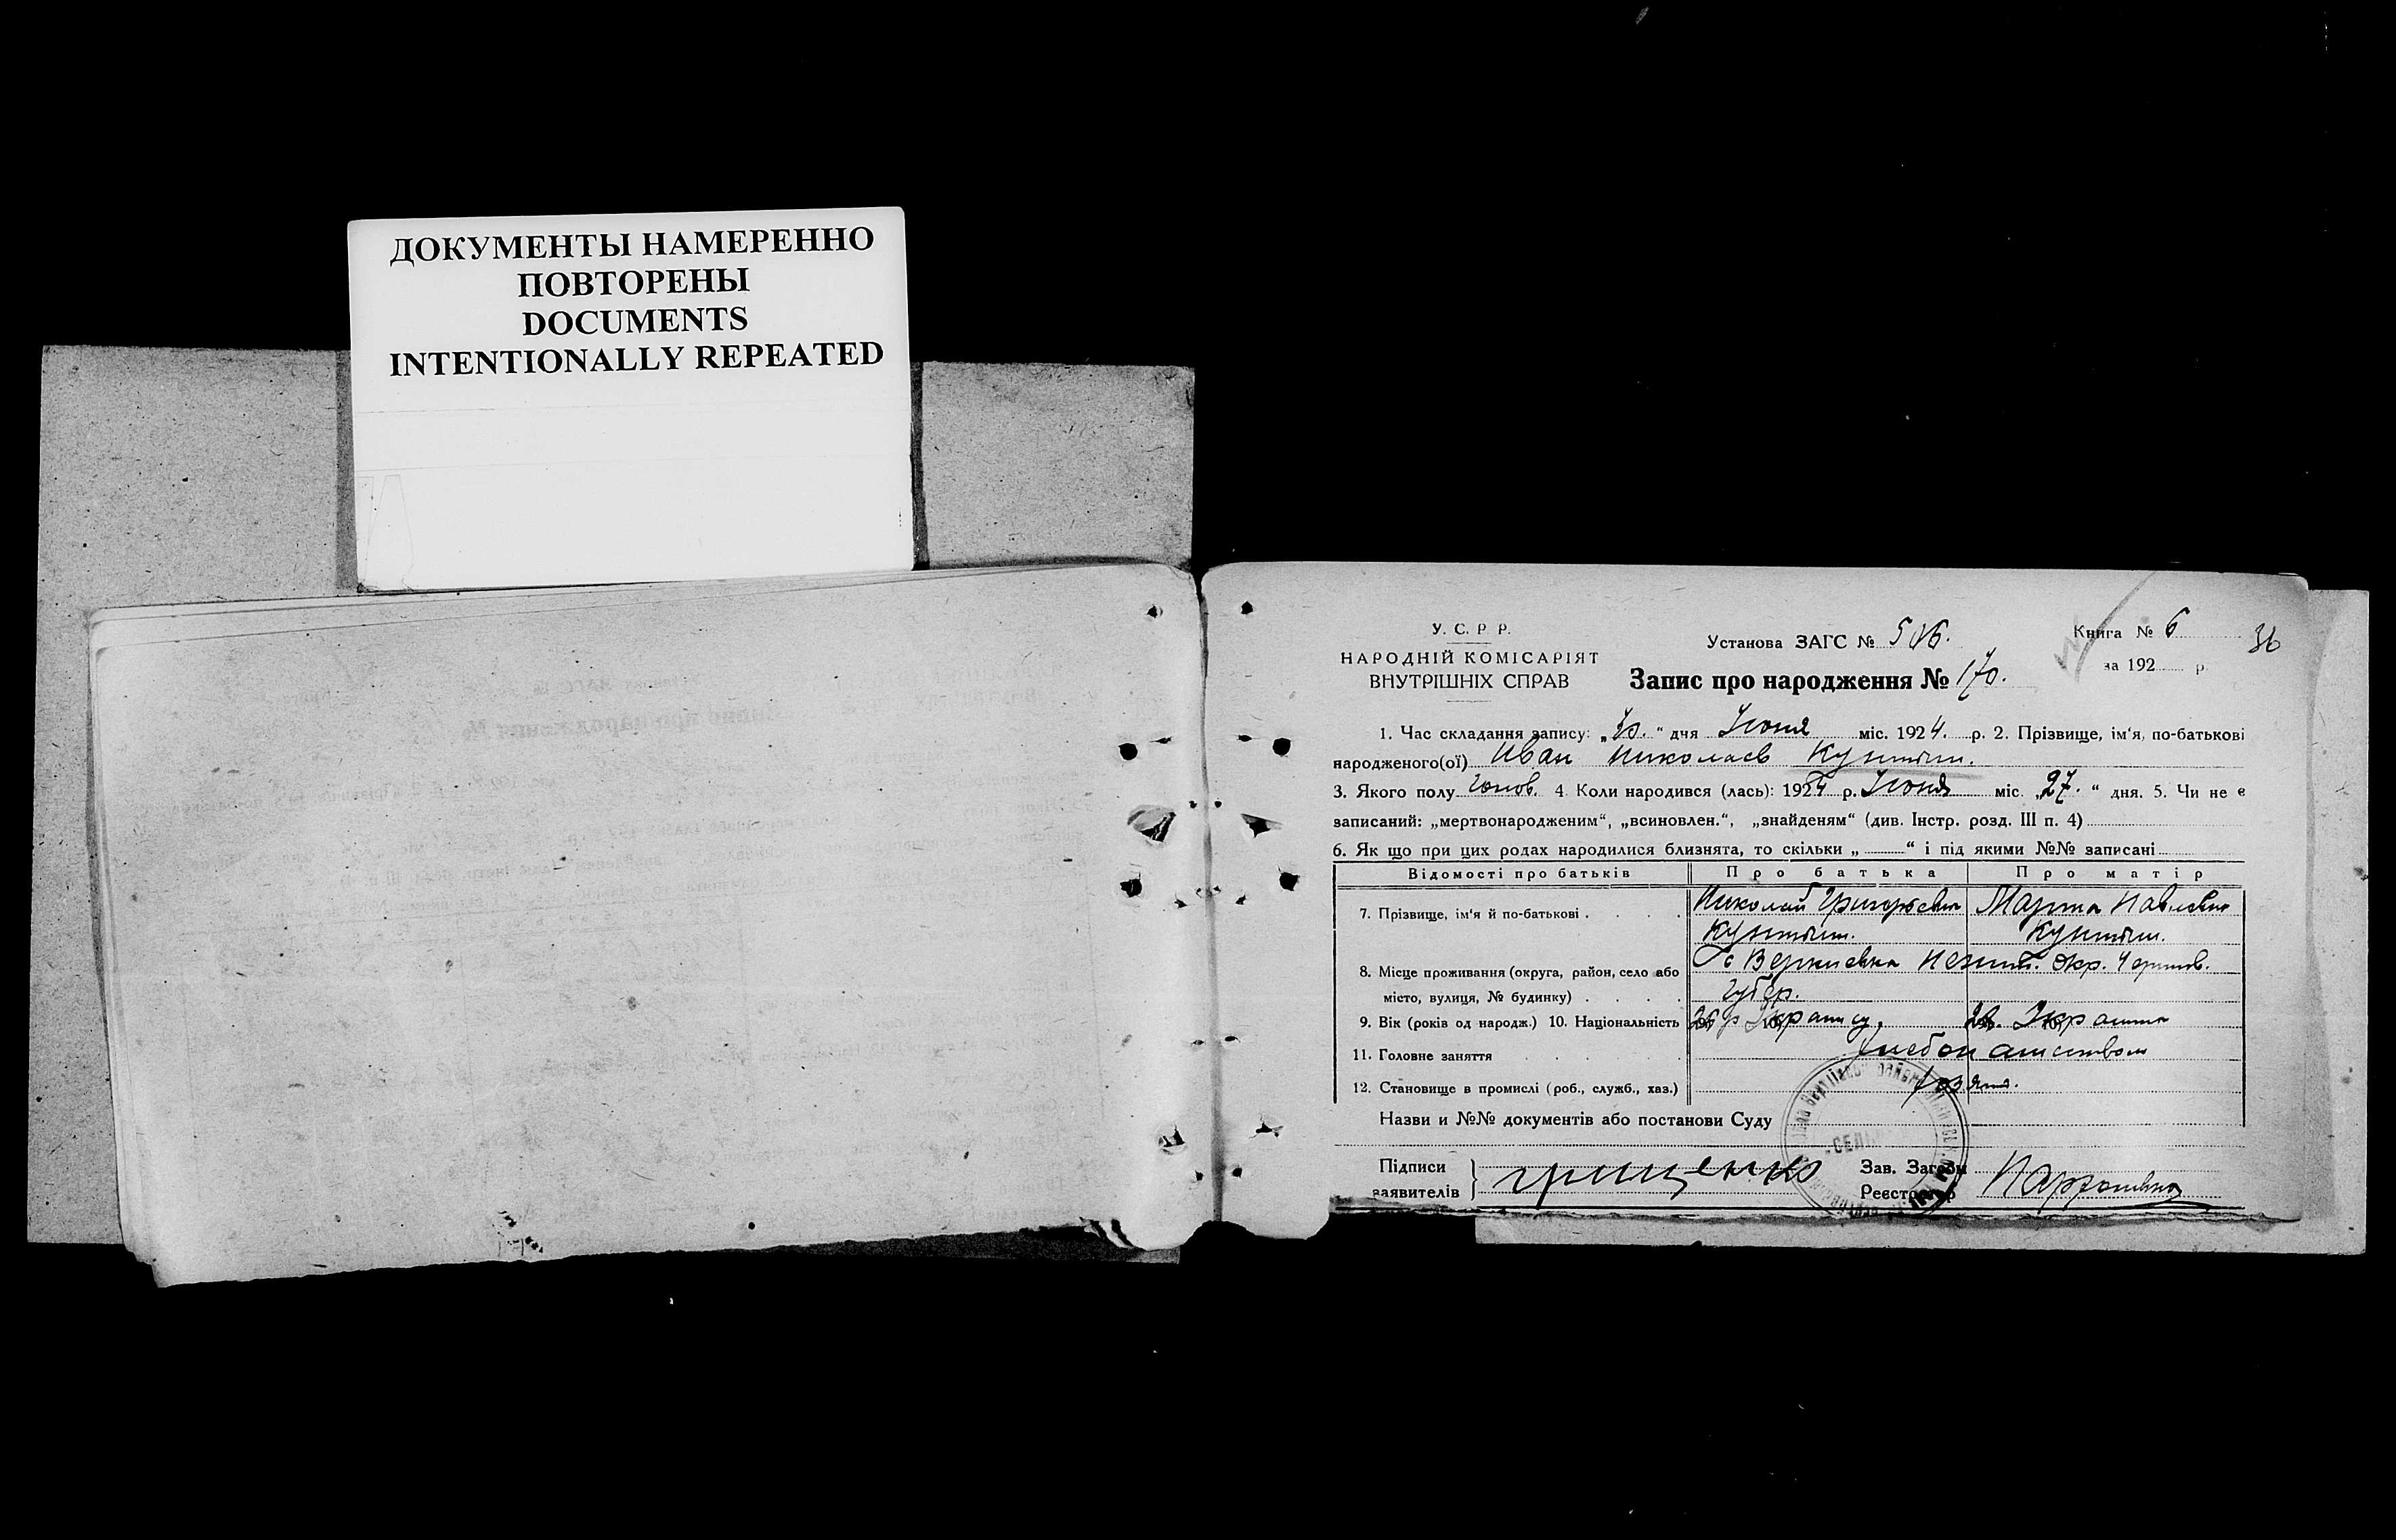 ДОКУМЕНТЫ НАМЕРЕННО
ПОВТОРЕНЫ
DOCUMENTS
INTENTIONALLY REPEATED
У. С. Р Р.
НАРОДНІЙ КОМІСАРІЯТ
ВНУТРІШНІХ СПРАВ
Установа ЗАГС №
Запис про народження № 170.
Книга № 6
за 192 р.
36
1. Час складання запису: „30.“ дня Июня міс. 1924. р. 2. Прізвище, ім'я, по-батькові
народженого(ої) Иван Николаев
3. Якого полу 4 Коли народився (лась): 1924 р. Июня міс. „27.“ дня. 5. Чи не є
записаний: „мертвонародженим“, „всиновлен.“, „знайденям“ (див. Інстр. розд. III п. 4)
6. Як що при цих родах народилися близнята, то скільки „ “ і під якими №№ записані
Відомості про батьків Про батька Про матір
7. Прізвище, ім'я й по-батькові . . . . Николай Григорьевич Марта Павловна
8. Місце проживання (округа, район, село або с Веркиевка Нежин. Окр. Чернигов.
місто, вулиця, № будинку) . . . . Губер.
9. Вік (років од народж.) 10. Національність 26
11. Головне заняття . . . . Хлебопашеством
12. Становище в промислі (роб., служб., хаз.)
Назви и №№ документів або постанови Суду
Підписи
заявителів
Грищенко
Зав. Загсом
Реєстратор